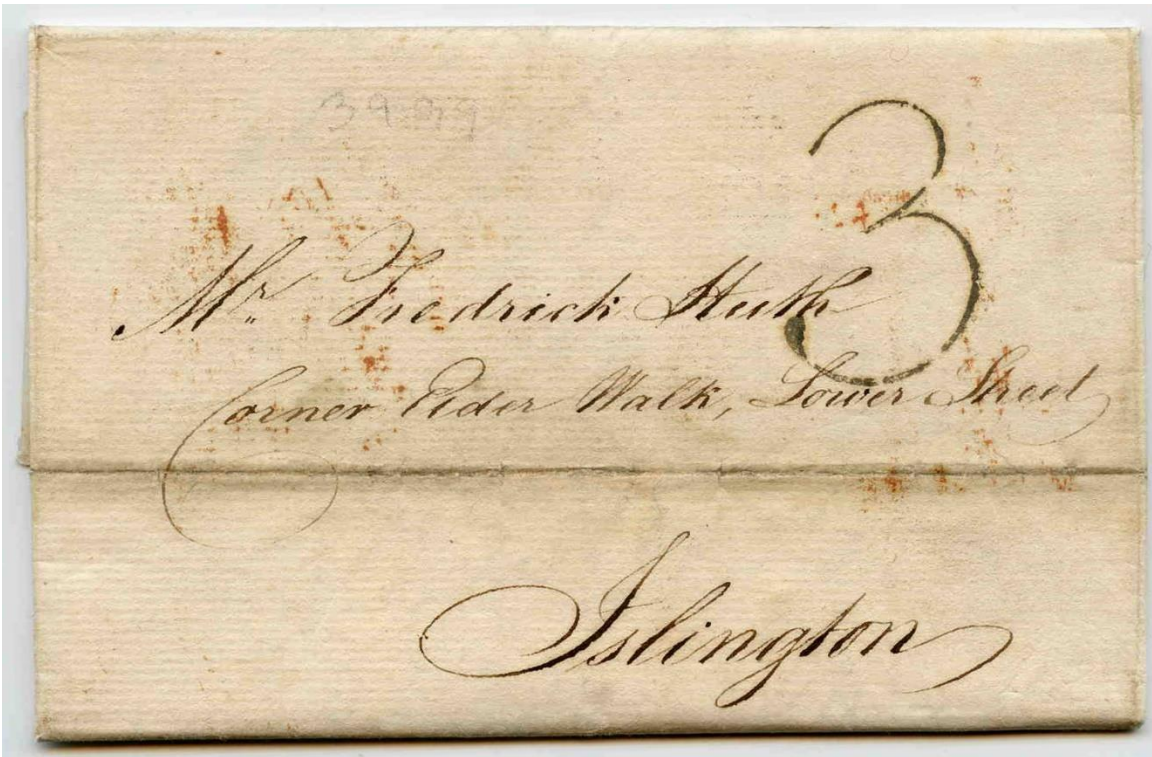 3
Mr. Fredrick Huth
Corner Elder Walk, Lower Street,
Islington